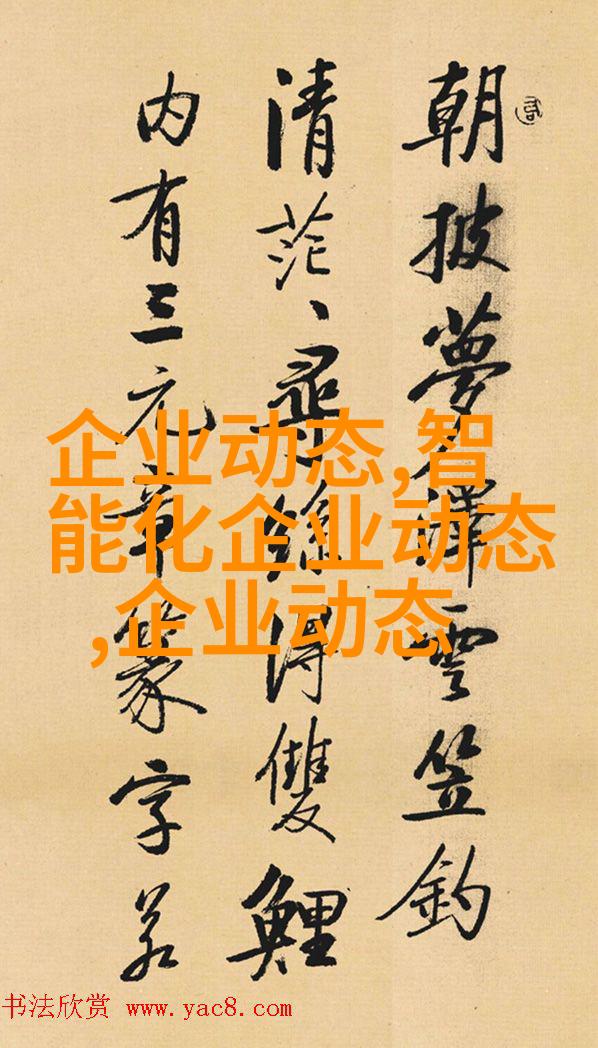 朝披夢澤雲笠釣
清茫、尋絲得雙鯉
内有三元章篆字若
企业动态,智
能化企业动态
,企业动态
书法欣赏 www.yac8.com